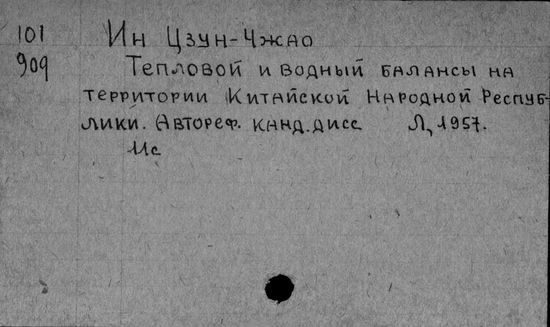 101 Ин Цзун-Чжао
909 Тепловой и водный балансы на
территории Китайской Народной Респуб-
лики. Автореф. канд. дисс Л, 1957.
Ис